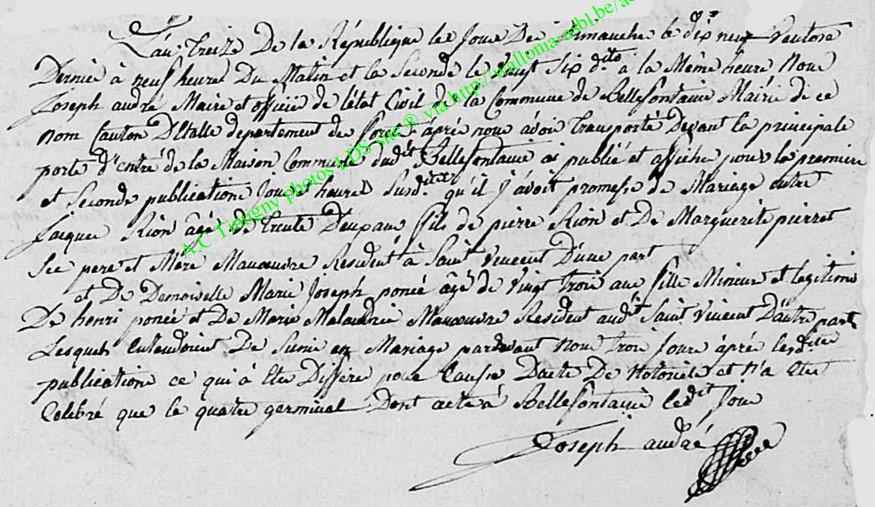 L'an Treize De la République les Jour De Dimanche le dix neuf Ventose
Dernie à neuf heures Du Matin et la Seconde le Vingt Six dito à la Même heure Nous
Joseph andré Maire et officie de l'état Civil de la Commune de Bellefontaine Mairie di ce
nom Canton D'Etalle departement des forets âprés nous avoir Transporté Devant la principale
porte d'entré de la Maison Commune dudit Bellefontaine ai publié et affiché pour la premiere
et Seconde publication Jour et heures Susdites qu'il j'avoit promesse de Mariage entre
Jacque Rion âgé de trente Deux ans fils de pierre Rion et De Marguerite pierret
See pere et Mere Manoeuvre Resident à Saint Vincent D'une part
et De Demoiselle Marie Joseph poncé âgé de Vingt trois ans fille Mineur et legitime
De henri poncé et De Marie Malandrée Manoeuvre Resident audit Saint Vincent D'autre part
Lesquels Entendoient De S'unir en Mariage pardevant nous trois Jours âprés lesdite
publications ce qui à Eté Differé pour Causse D'acte De Notoriété et n'a Eté
Celebré que le quatre germinal Dont acte à Bellefontaine ledit Jour
Joseph andré
A.C Tintigny photos LDS Site ® via http://wallonia-asbl.be/ac